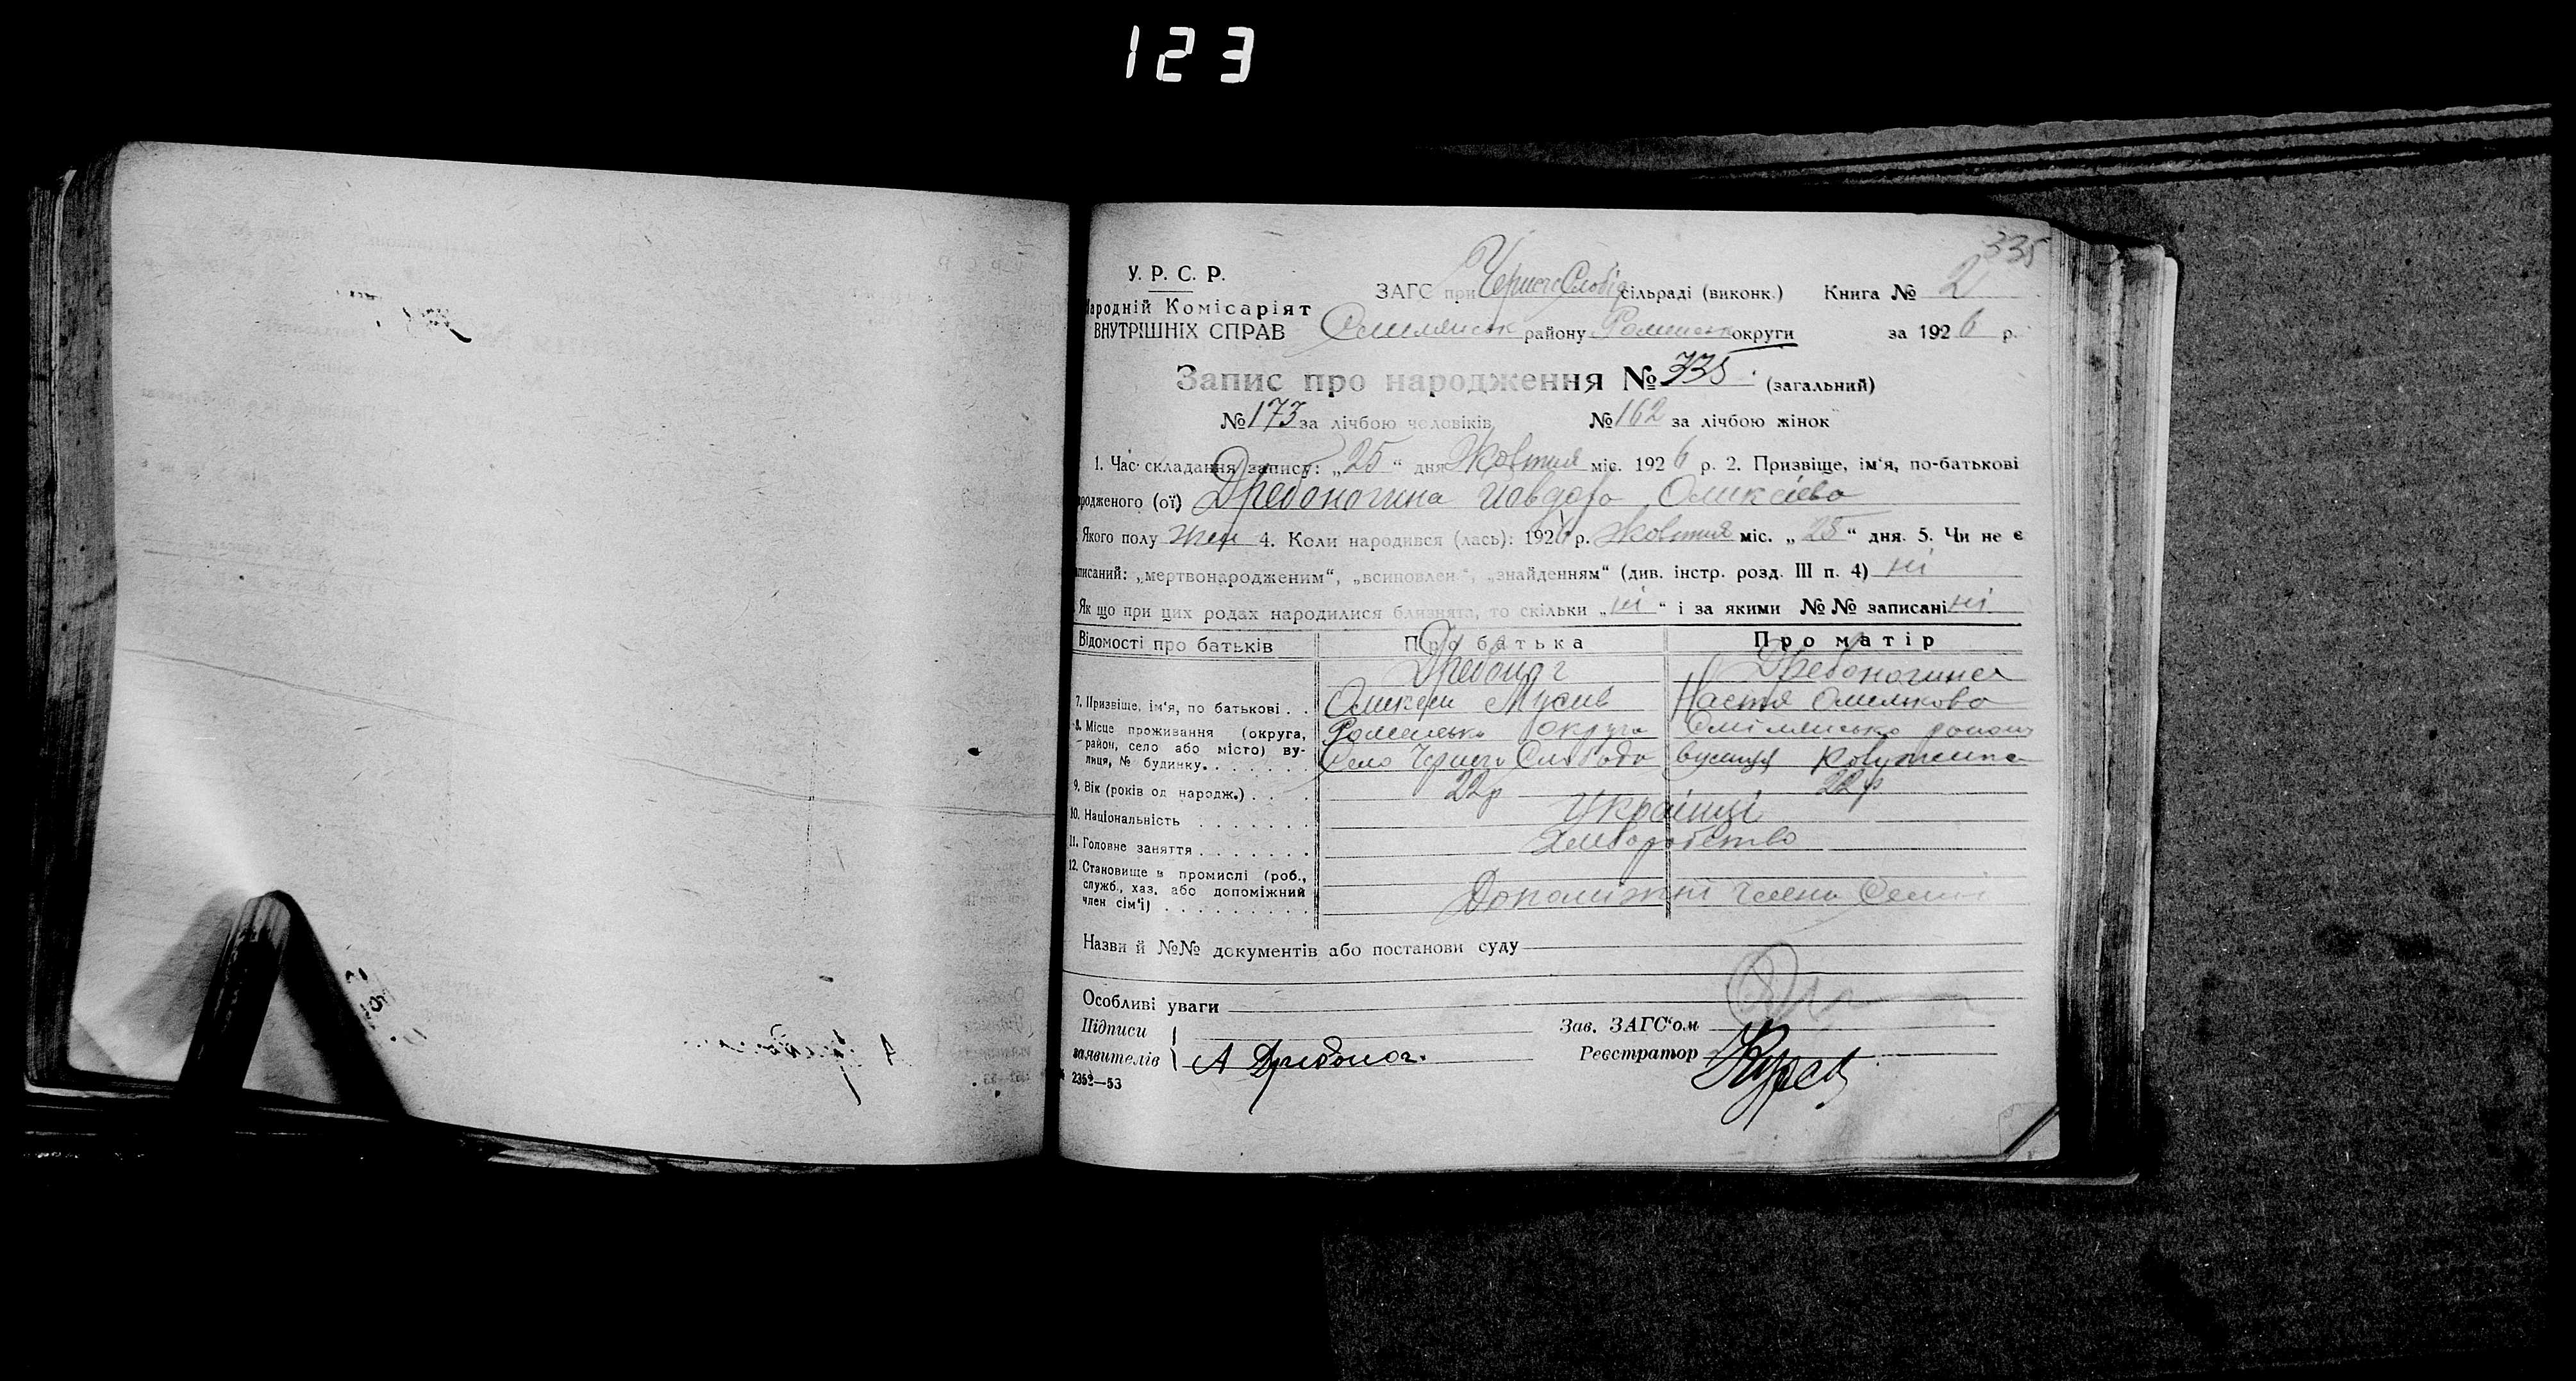 123
335
У. Р. С. Р.
Народній Комісаріят
ВНУТРІШНІХ СПРАВ
ЗАГС при Чернечо Слобід сільраді (виконк.) Книга № 2
району Роменськ округи за 1926 р.
Запис про народження № 335. (загальний)
№ 173 за лічбою чоловіків № 162 за лічбою жінок
1. Час складання запису: „25“ дня Жовтня міс. 1926 р. 2. Призвіще, ім‘я, по-батькові
родженого (ої) Дребоногина Иовдоха Олексієва
Якого полу жен 4. Коли народився (лась): 1926 р. Жовтня міс. „25“ дня. 5. Чи не є
писаний: „мертвонародженим“, „всиновлен.“, „знайденням“ (див. інстр. розд. III п. 4) ні
Як що при цих родах народилися близнята, то скільки „ні“ і за якими №№ записані ні
Відомості про батьків Про батька Про матір
Дребоног Дребоногина
7. Призвіще, ім‘я, по батькові . . Олексій Мусів Настя Омелькова
8. Місце проживання (округа, Роменська округа
район, село або місто) ву-
лиця, № будинку. . . . . . . Село Чернеча Слобода вулиця
9. Вік (років од народж.) . . . 22 р 22 р
10. Національність . . . . . . . Українці
11. Головне заняття . . . . . . . Хліборобство
12. Становище в промислі (роб.,
служб., хаз. або допоміжний Допоміжні члени Семьі
член сім‘ї) . . . . . . . . .
Назви й №№ документів або постанови суду
Особливі уваги
Підписи Зав. ЗАГС‘ом
заявителів А Дребоног. Реєстратор
2352—53